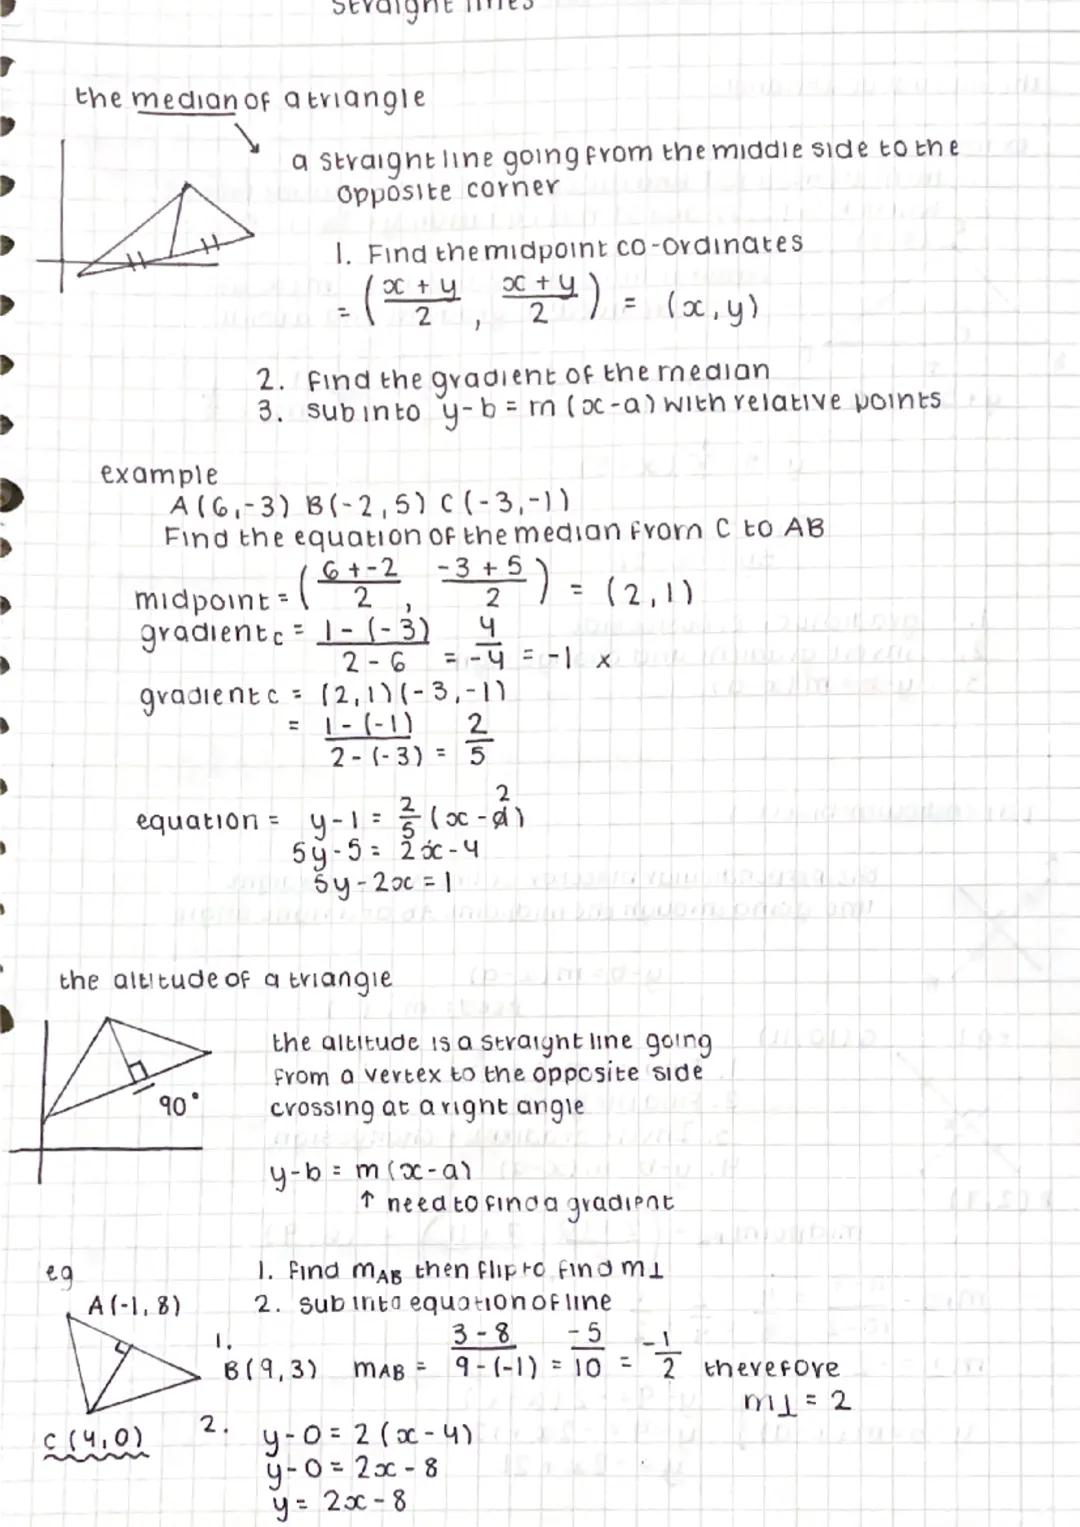 Straight lines
the median of a triangle
a straight line going from the middle side to the
opposite corner
1. Find the midpoint co-ordinates
= (x + y / 2 , x + y / 2) = (x, y)
2. Find the gradient of the median
3. sub into y-b = m (x-a) with relative points
example
A (6,-3) B(-2,5) C (-3,-1)
Find the equation of the median from C to AB
midpoint = (6 + -2 / 2 , -3 + 5 / 2) = (2,1)
gradient c = 1 - (-3) / 2 - 6 = 4 / -4 = -1 x
gradient c = (2,1) (-3,-1)
= 1 - (-1) / 2 - (-3) = 2 / 5
equation = y - 1 = 2/5 (x - 2)
5y - 5 = 2x - 4
5y - 2x = 1
the altitude of a triangle
the altitude is a straight line going
from a vertex to the opposite side
90°
crossing at a right angle
y-b = m (x-a)
↑ need to find a gradient
eg
1. find mAB then flip to find m⊥
A (-1, 8)
2. sub into equation of line
1.
B (9,3) mAB = 3 - 8 / 9 - (-1) = -5 / 10 = -1 / 2 therefore
m⊥ = 2
C (4,0)
2. y - 0 = 2 (x - 4)
y - 0 = 2x - 8
y = 2x - 8